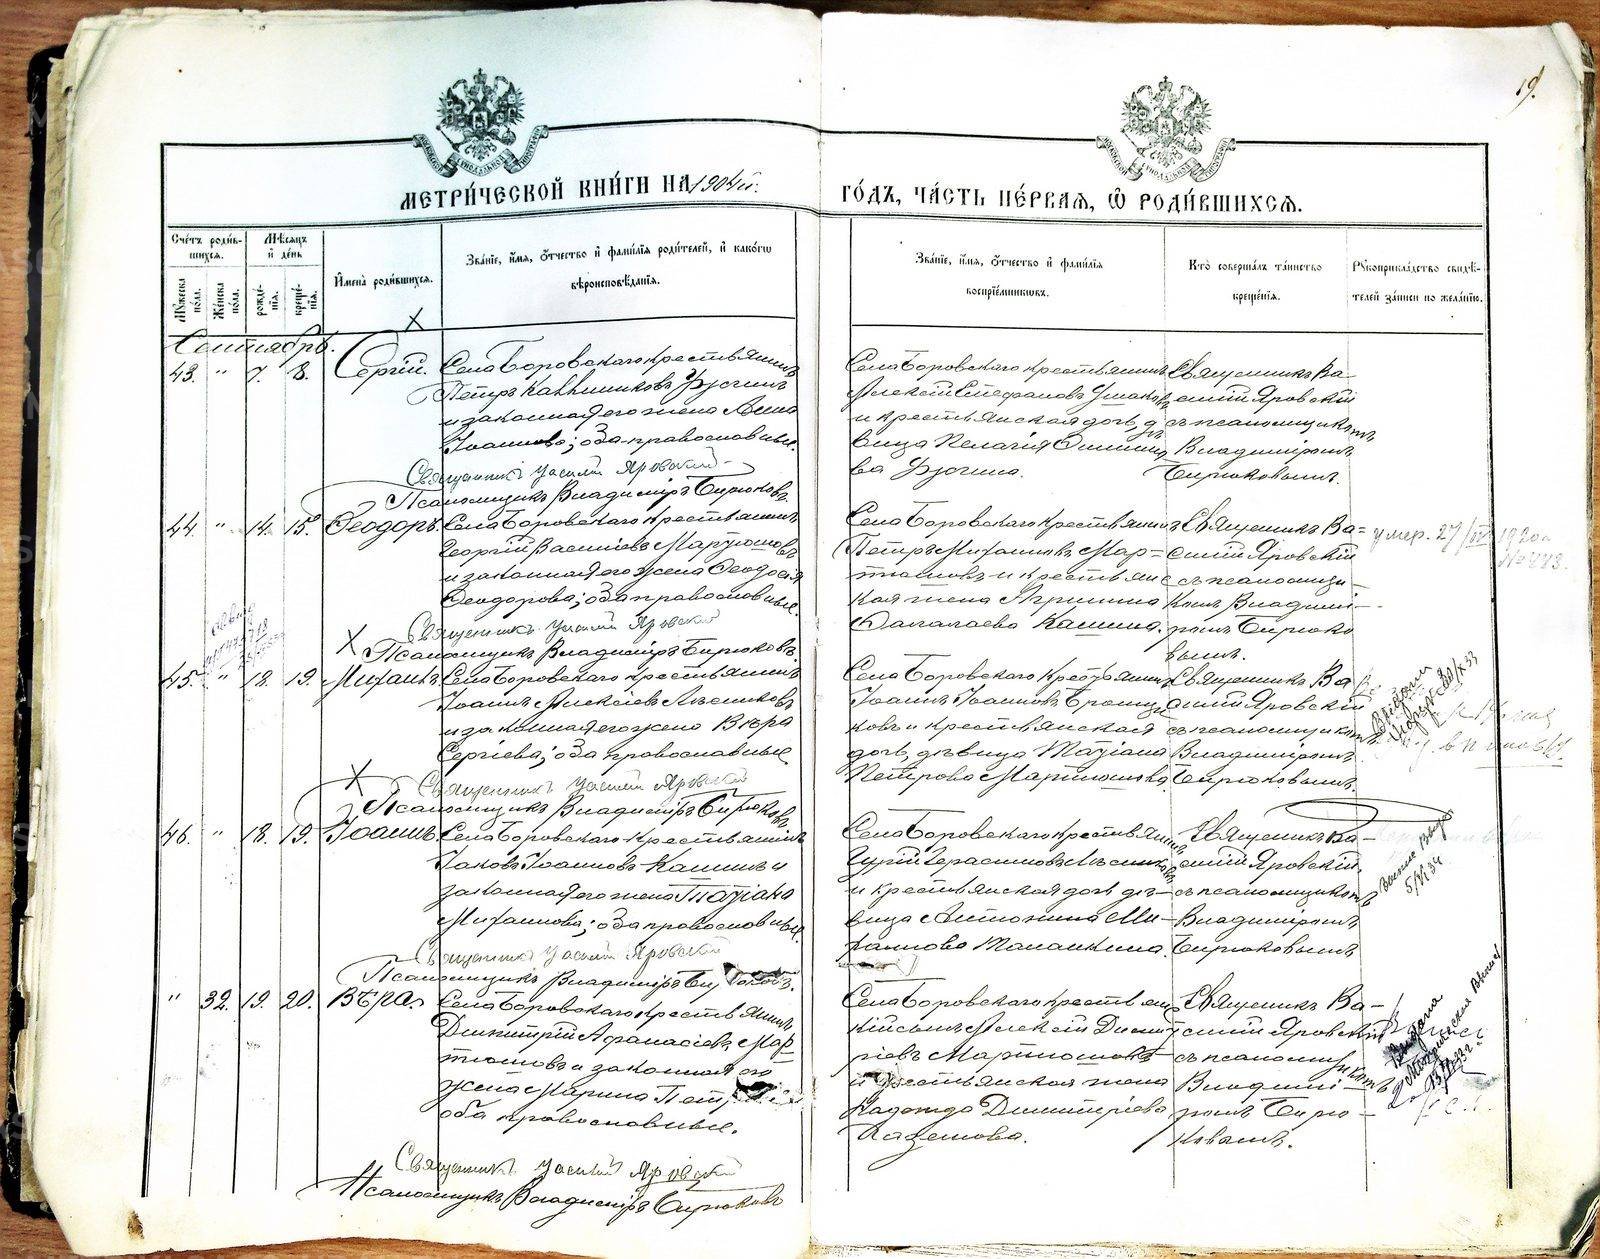 19.
МЕТРИ́ЧЕСКОЙ КНИ́ГИ НА 1904й:
ГО́ДЪ, ЧА́СТЬ ПЕ́РВАЯ, Ѡ РОДИ́ВШИХСЯ.
Сче́тъ роди́в-
шихся.
Мѣ́сяцъ
и҆ де́нь
И҆мена̀ роди́вшихся.
Зва́нїе, и҆́мя, ѻ҆́тчество и҆ фами́лїя роди́телей, и҆ како́гѡ
вѣроисповѣ́данїя.
Зва́нїе, и҆́мя, ѻ҆́тчество и҆ фами́лїя
воспрїе́мниковъ.
Кто̀ соверша́лъ та́инство
креще́нїя.
Рꙋкоприкла́дство свидѣ́-
телей за́писи по жела́нїю.
Мꙋ́жеска
по́ла.
Же́нска
по́ла.
рожде́-
нїя.
креще́-
нїя.
Сентябрь.
43. " 7. 8. Сергій.
Села Боровскаго крестьянинъ
Петръ Фрогинъ
и законная его жена Анна
Іоаннова; оба православные.
Священникъ Василій Яровскій
Псаломщикъ Владиміръ Бирюковъ
Села Боровскаго крестьянинъ
Алексій Стефановъ Ушаковъ
и крестьянская дочь, дѣ-
вица Пелагія
ва Фрогина.
Священникъ Ва-
силій Яровскій
съ псаломщикомъ
Владиміромъ
Бирюковымъ.
44. " 14. 15. Ѳеодоръ.
Села Боровскаго крестьянинъ
Георгій Василіевъ Мартюшовъ
и законная его жена Ѳеодосія
Ѳеодорова; оба православные.
Священникъ Василій Яровскій
Псаломщикъ Владиміръ Бирюковъ
Села Боровскаго крестьянинъ
Петръ Михаиловъ Мар-
тюшовъ и крестьянс-
кая жена Агрипина
Кашина.
Священникъ Ва-
силій Яровскій
съ псаломщи-
комъ Владимі-
ромъ Бирюко
вымъ.
умер. 27/III 1920г
45. " 18. 19. Михаилъ
Села Боровскаго крестьянинъ
Іоаннъ Алексіевъ Лѣсниковъ
и законная его жена Вѣра
Сергіева; оба православные
Священникъ Василій Яровскій
Псаломщикъ Владиміръ Бирюковъ
Села Боровскаго крестьянинъ
Іоаннъ Іоанновъ
ковъ и крестьянская
дочь, дѣвица Татіана
Петрова Мартюшова.
Священникъ Ва
силій Яровскій
съ псаломщикомъ
Владиміромъ
Бирюковымъ.
46. " 18. 19. Іоаннъ.
Села Боровскаго крестьянинъ
Іаковъ Іоанновъ Кашинъ и
законная его жена Татіана
Михаилова; оба православные.
Священникъ Василій Яровскій
Псаломщикъ Владиміръ Бирюковъ.
Села Боровскаго крестьянинъ
Гурій Герасимовъ Лѣсниковъ
и крестьянская дочь дѣ-
вица Антонина Ми-
хаилова Таланкина.
Священникъ Ва-
силій Яровскій,
съ псаломщикомъ
Владиміромъ
Бирюковымъ
5/VI 34
" 32. 19. 20. Вѣра.
Села Боровскаго крестьянинъ
Димитрій Аѳанасіевъ Мар-
тюшовъ и законная его
жена Марина
оба православные.
Священникъ Василій Яровскій
Псаломщикъ Владиміръ Бирюковъ
Села Боровскаго крестьян-
скій сынъ Алексій Димит-
ріевъ Мартюшовъ
и крестьянская жена
Надежда Димитріева
Казенова.
Священникъ Ва-
силій Яровскій
съ псаломщикомъ
Владимі-
ромъ Бирю-
ковымъ.
Выдана